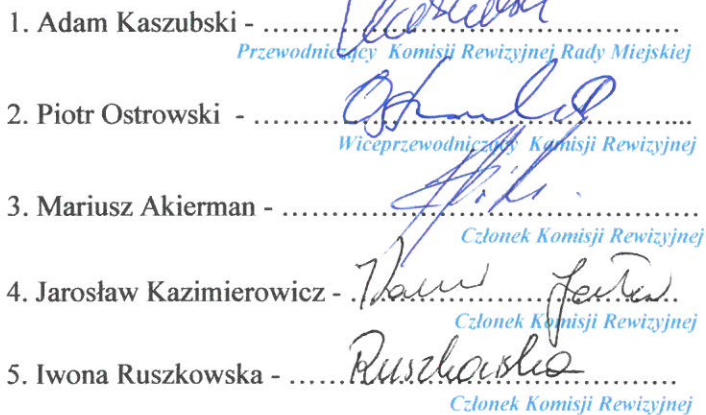 1. Adam Kaszubski - ..............................................
Przewodniczący Komisji Rewizyjnej Rady Miejskiej
2. Piotr Ostrowski - ..............................................
Wiceprzewodniczący Komisji Rewizyjnej
3. Mariusz Akierman - ..............................................
Członek Komisji Rewizyjnej
4. Jarosław Kazimierowicz - ....................................
Członek Komisji Rewizyjnej
5. Iwona Ruszkowska - ...... Ruszkowska ................
Członek Komisji Rewizyjnej